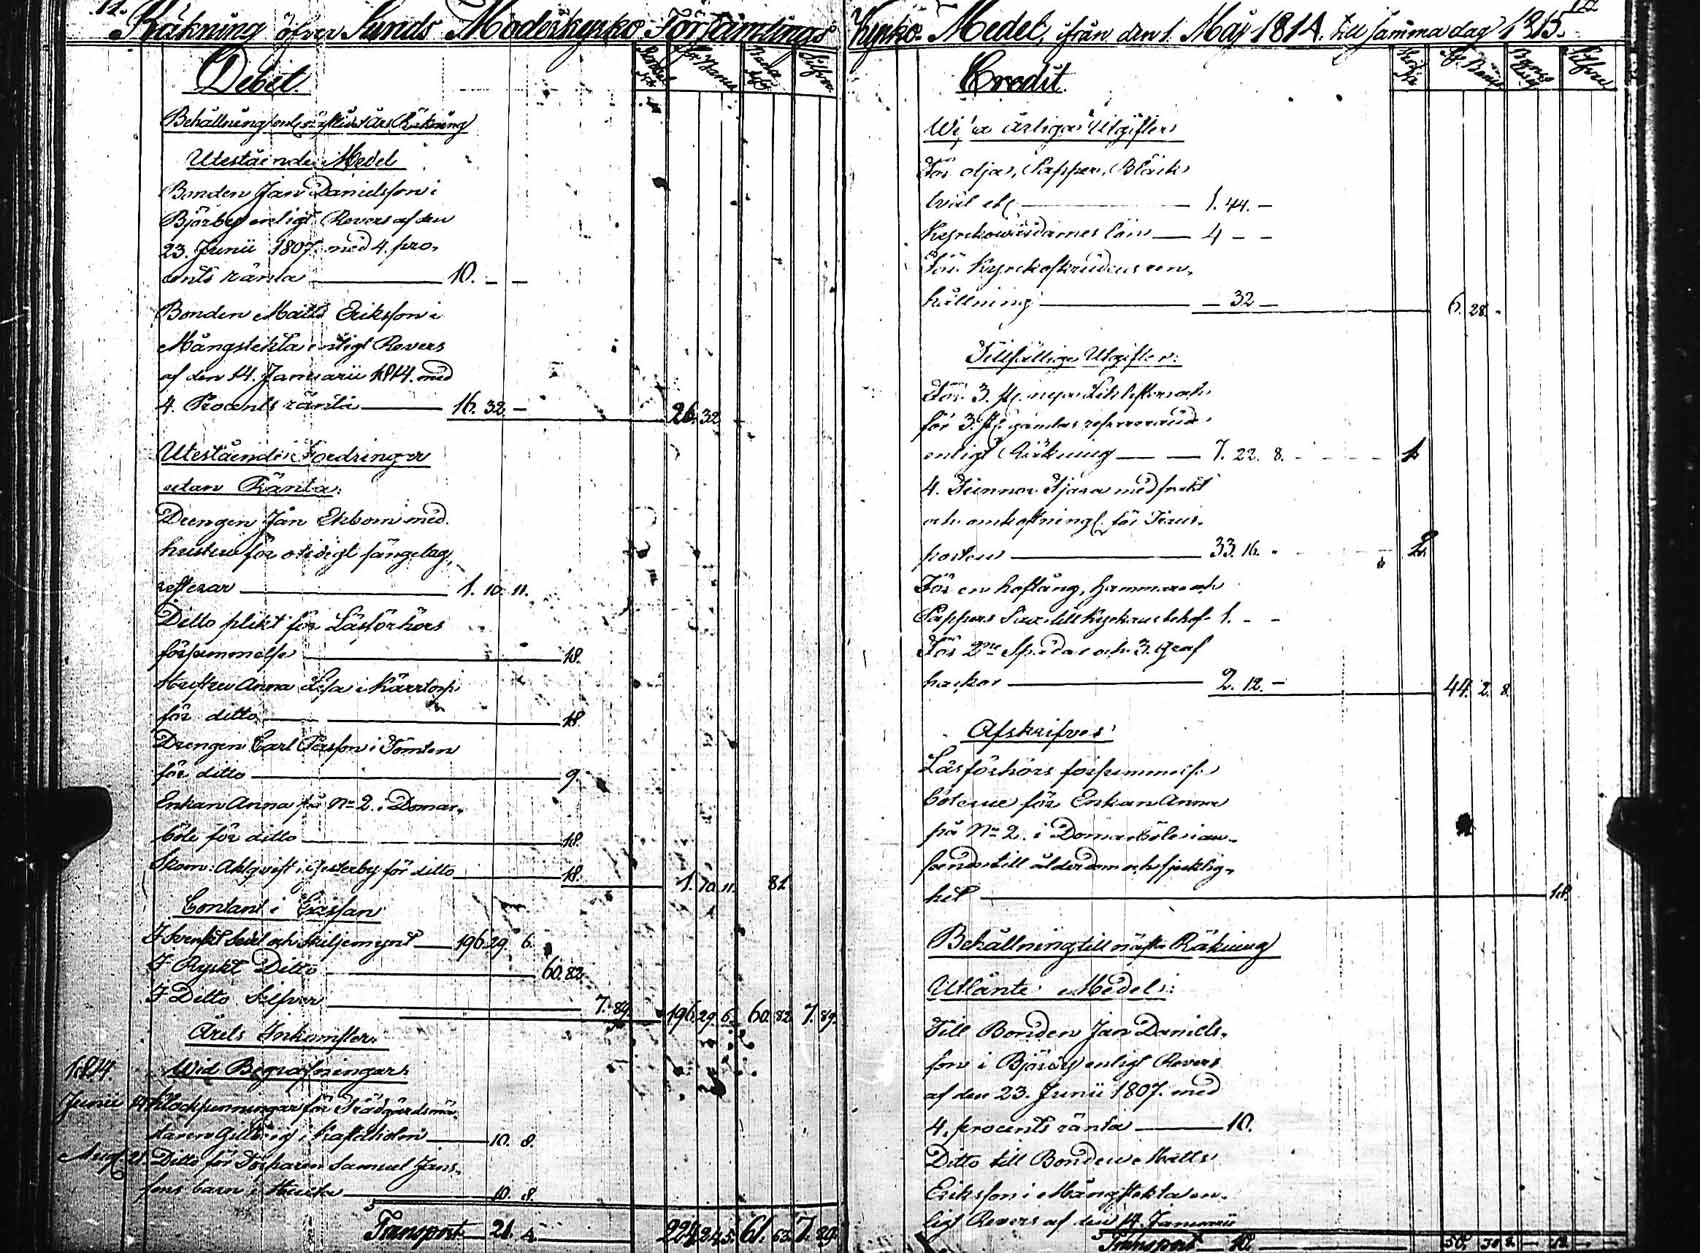 Räkning öfver Sunds Moderkyrko Församlings Kyrko Medel, ifrån den 1. Maij 1814. till samma dag 1815.
Debet.
Behållning enl. sistledit Års Räkning
Utestående Medel
Bonden Jan Danielsson i
Björby enligt Revers af den
23. Junii 1807. med 4. pro-
cents ränta 10. - -
Bonden Matts Eriksson i
Mångstekta enligt Revers
af den 14. Januarii 1814. med
4. Procents ränta 16. 32 - 26. 32
Utestående Fordringar
utan Ränta.
Drengen Jan Ekbom med
hustru för otidigt sängelag,
resterar 1. 10. 11.
Ditto plikt för Läsförhörs
försummelse 18.
Hustru Anna Lisa i Kärrtorp
för ditto 18
Drengen Carl Persson i Tomten
för ditto 9.
Enkan Anna på No 2. i Domar-
böle för ditto 18.
Skom. Ahlqvist i Gesterby för ditto 18. 1. 10. 11. 81
Contant i Cassan
I Svenskt Sedel och Skiljemynt 196. 29. 6.
I Ryskt Ditto 60. 82.
I Ditto Silfver 7. 89. 196. 29. 6. 60. 82. 7. 89.
Årets Inkomster.
1814. Wid Begrafningar.
Junii Klockpenningar för Trädgårdsmä-
staren i Kastelholm 10. 8.
Aug. 21 Ditto för Torparen Samuel Jans-
sons barn i 10. 8.
Transport 21. 4. 224. 24. 5. 61. 63. 7. 89.
Credit.
Wissa årliga Utgifter
För olja, Papper, Bläck
1. 44. -
Kyrckowärdarnes lön 4 - -
För Kyrckoskrudens ren-
hållning - 32 - 6. 28. -
Tillfällige Utgifter:
För 3. st. nya och
för 3. st. gamlas
enligt Räkning 7. 22. 8. 1
4. Tunnor Tjära med frakt
och för
33. 16. 2.
För en hoftång, hammare och
Pappers Sax till Kyrckans behof 1. - -
För 2ne Spadar och 3. Graf
hackor 2. 12. - 44. 2. 8.
Afskrifves:
Läsförhörs försummelse
böterne för Enkan Anna
på No 2. i Domarböle i an-
seende till ålderdom och sjuklig-
het 18.
Behållning till nästa Räkning
Utlånte Medel:
Till Bonden Jan Daniels-
son i Björby enligt Revers
af den 23. Junii 1807. med
4. procents ränta 10.
Ditto till Bonden Matts
Eriksson i Mångstekta en-
ligt Revers af den 14. Januarii
Transport 10. 50. 30. 8. - 18. - -